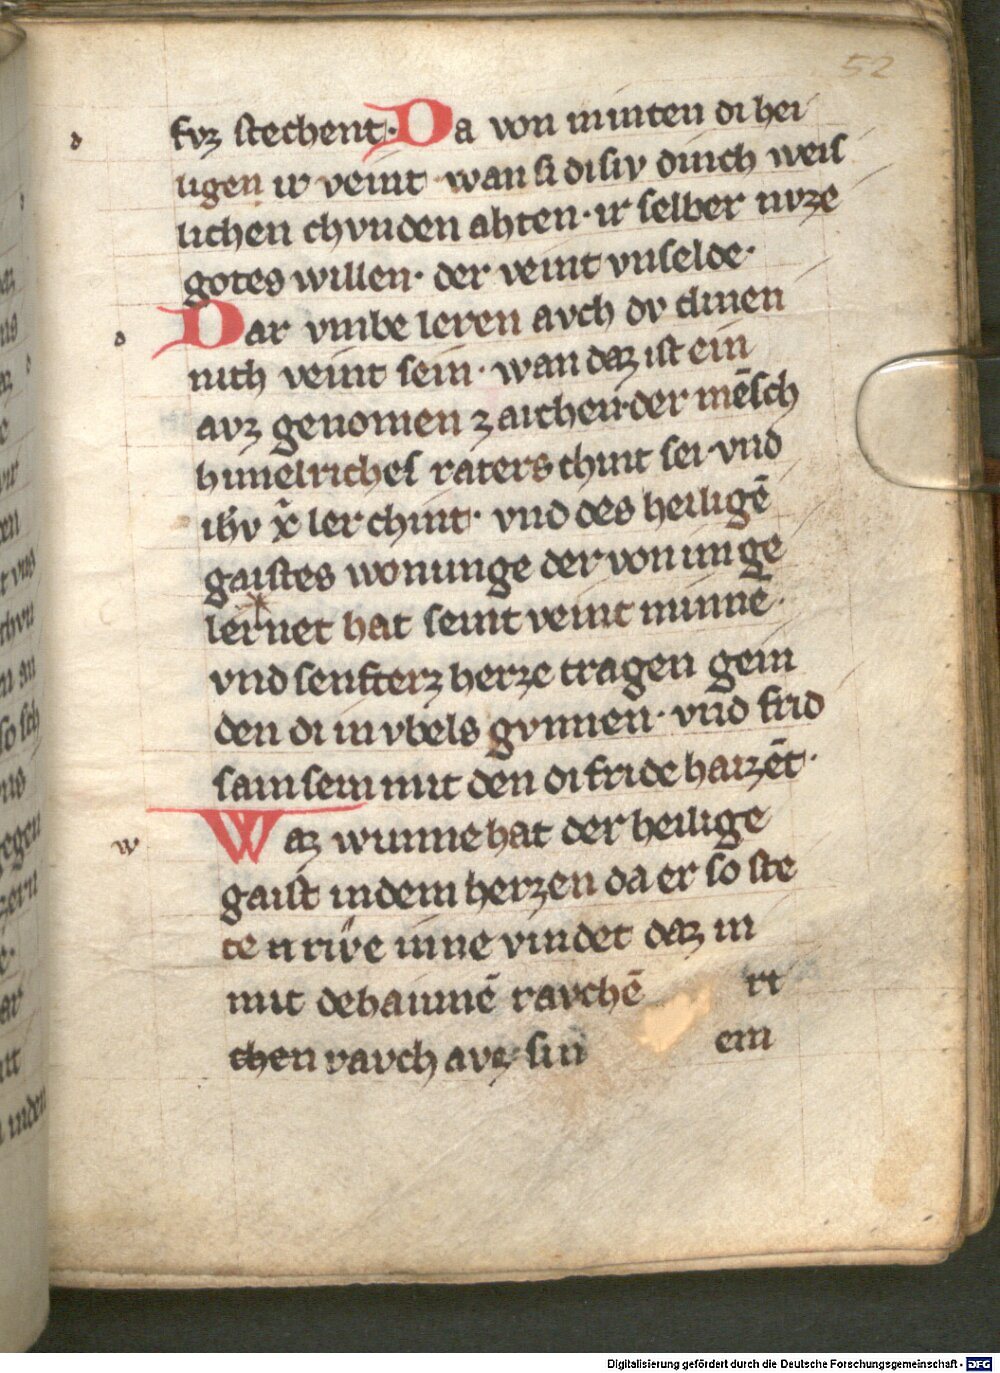 52
fvz stechent· Da von minten di hei
ligen ir veint wan si disiv dinch weis
lichen chvnden ahten· ir selber nvze
gotes willen· der veint vnselde·
Dar vmbe leren avch dv dinen
nith veint sein· wan daz ist ein
avz genomen zaichen· der mēsch
himelriches vaters chint sei· vnd
ih̄v x̄ ler chint· vnd des heiligē
gaistes wonunge der von im ge
lernet hat seint veint minnē·
vnd senfterz herze tragen gein
den di in vbels gvnnen· vnd frid
sam sein mit den di fride hazēt·
Waz wunne hat der heilige
gaist in dem herzen da er so ste
te rẘe inne vindet daz in
mit dehainnē ravchē rt
chen ravch avz sin em
d
d
w
Digitalisierung gefördert durch die Deutsche Forschungsgemeinschaft - DFG